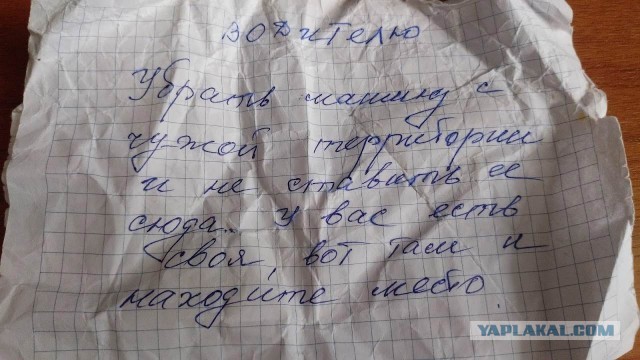 Водителю
Убрать машину с
чужой территории
и не ставить ее
сюда.. У вас есть
своя, вот там и
находите место
YAPLAKAL.COM